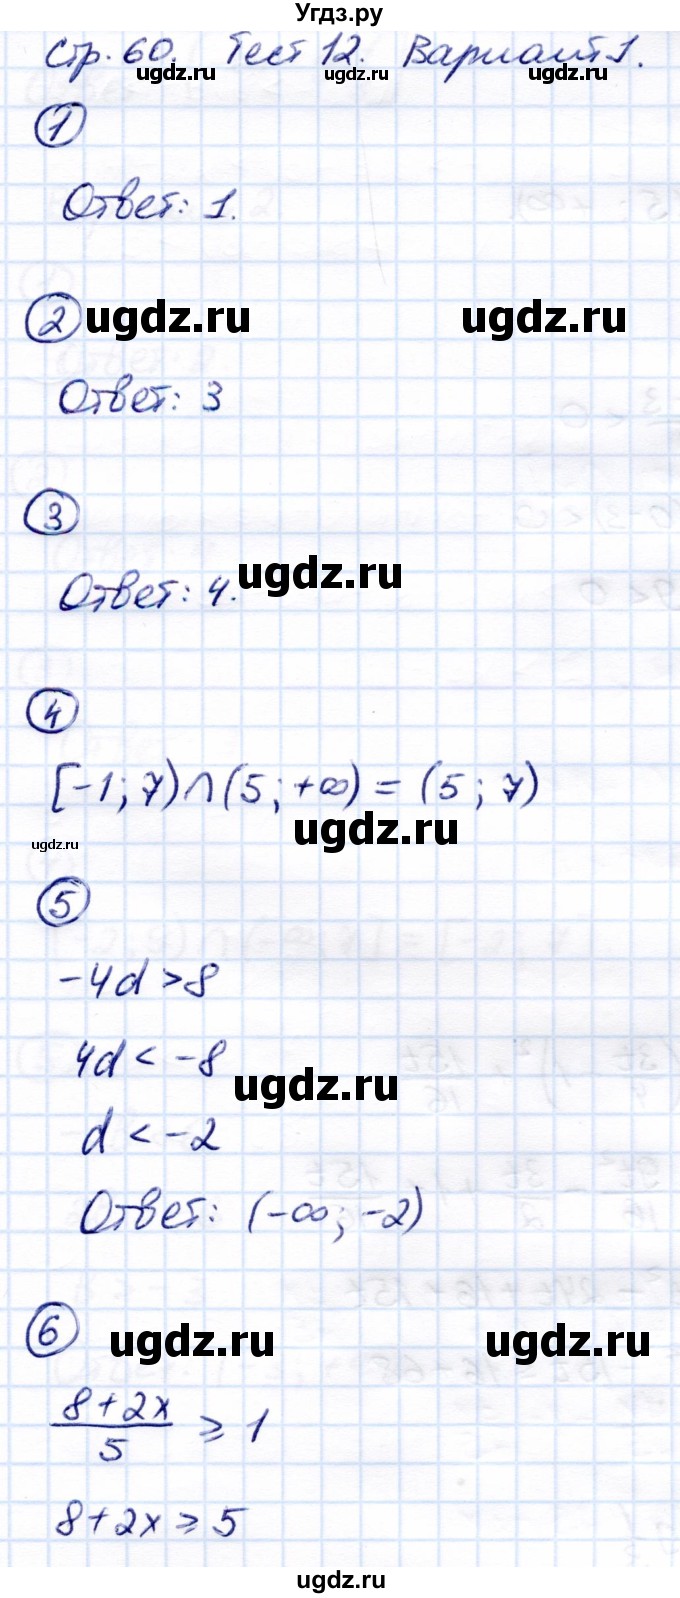 Угдз.ру
Стр. 60. Тест 12. Вариант 1.
1
Ответ: 1.
2 ugdz.ru ugdz.ru
Ответ: 3
3
ugdz.ru
Ответ: 4.
4
[-1; 7) ∩ (5; +∞) = (5; 7)
ugdz.ru
ugdz.ru
5
-4d > 8
4d < -8
ugdz.ru
d < -2
Ответ: (-∞; -2)
6 ugdz.ru ugdz.ru
(8+2x)/5 ⩾ 1
8+2x ⩾ 5
ugdz.ru